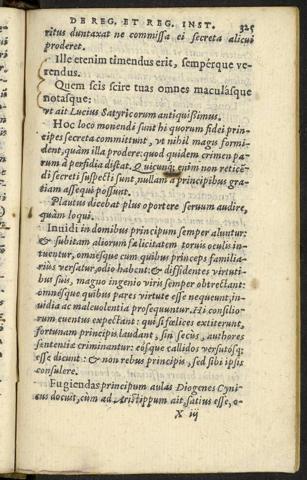 DE REG. ET REG. INST. 325
ritus duntaxat ne commissa ei secreta alicui
proderet.
Ille etenim timendus erit, sempérque ve-
rendus.
Quem scis scire tuas omnes maculásque
notasque:
ut ait Lucius Satyricorum antiquißimus.
Hoc loco monendi sunt hi quorum fidei prin-
cipes secreta committunt, vt nihil magis formi-
dent, quàm illa prodere: quod quidem crimen pa-
rum à perfidia distat. Quicunq; enim non retice-
di secreti suspecti sunt, nullam à principibus gra-
tiam assequi possunt.
Plautus dicebat plus oportere seruum audire,
quàm loqui.
Inuidi in domibus principum semper aluntur:
& subitam aliorum fælicitatem toruis oculis in-
tuentur, omnésque cum quibus princeps familia-
riùs versatur, odio habent: & diffidentes virtuti-
bus suis, magno ingenio viris semper obtrectant:
omnesque quibus pares virtute esse nequeunt, in-
uidia ac maleuolentia prosequuntur. Hi consilio-
rum euentus expectant: qui si fœlices extiterunt,
fortunam principis laudant, sin secùs, authores
sententiæ criminantur: eósque callidos versutosq;
esse dicunt: & non rebus principis, sed sibi ipsis
consulere.
Fugiendas principum aulas Diogenes Cyni-
cus docuit, cùm ad Aristippum ait, satius esse, o-
X iij